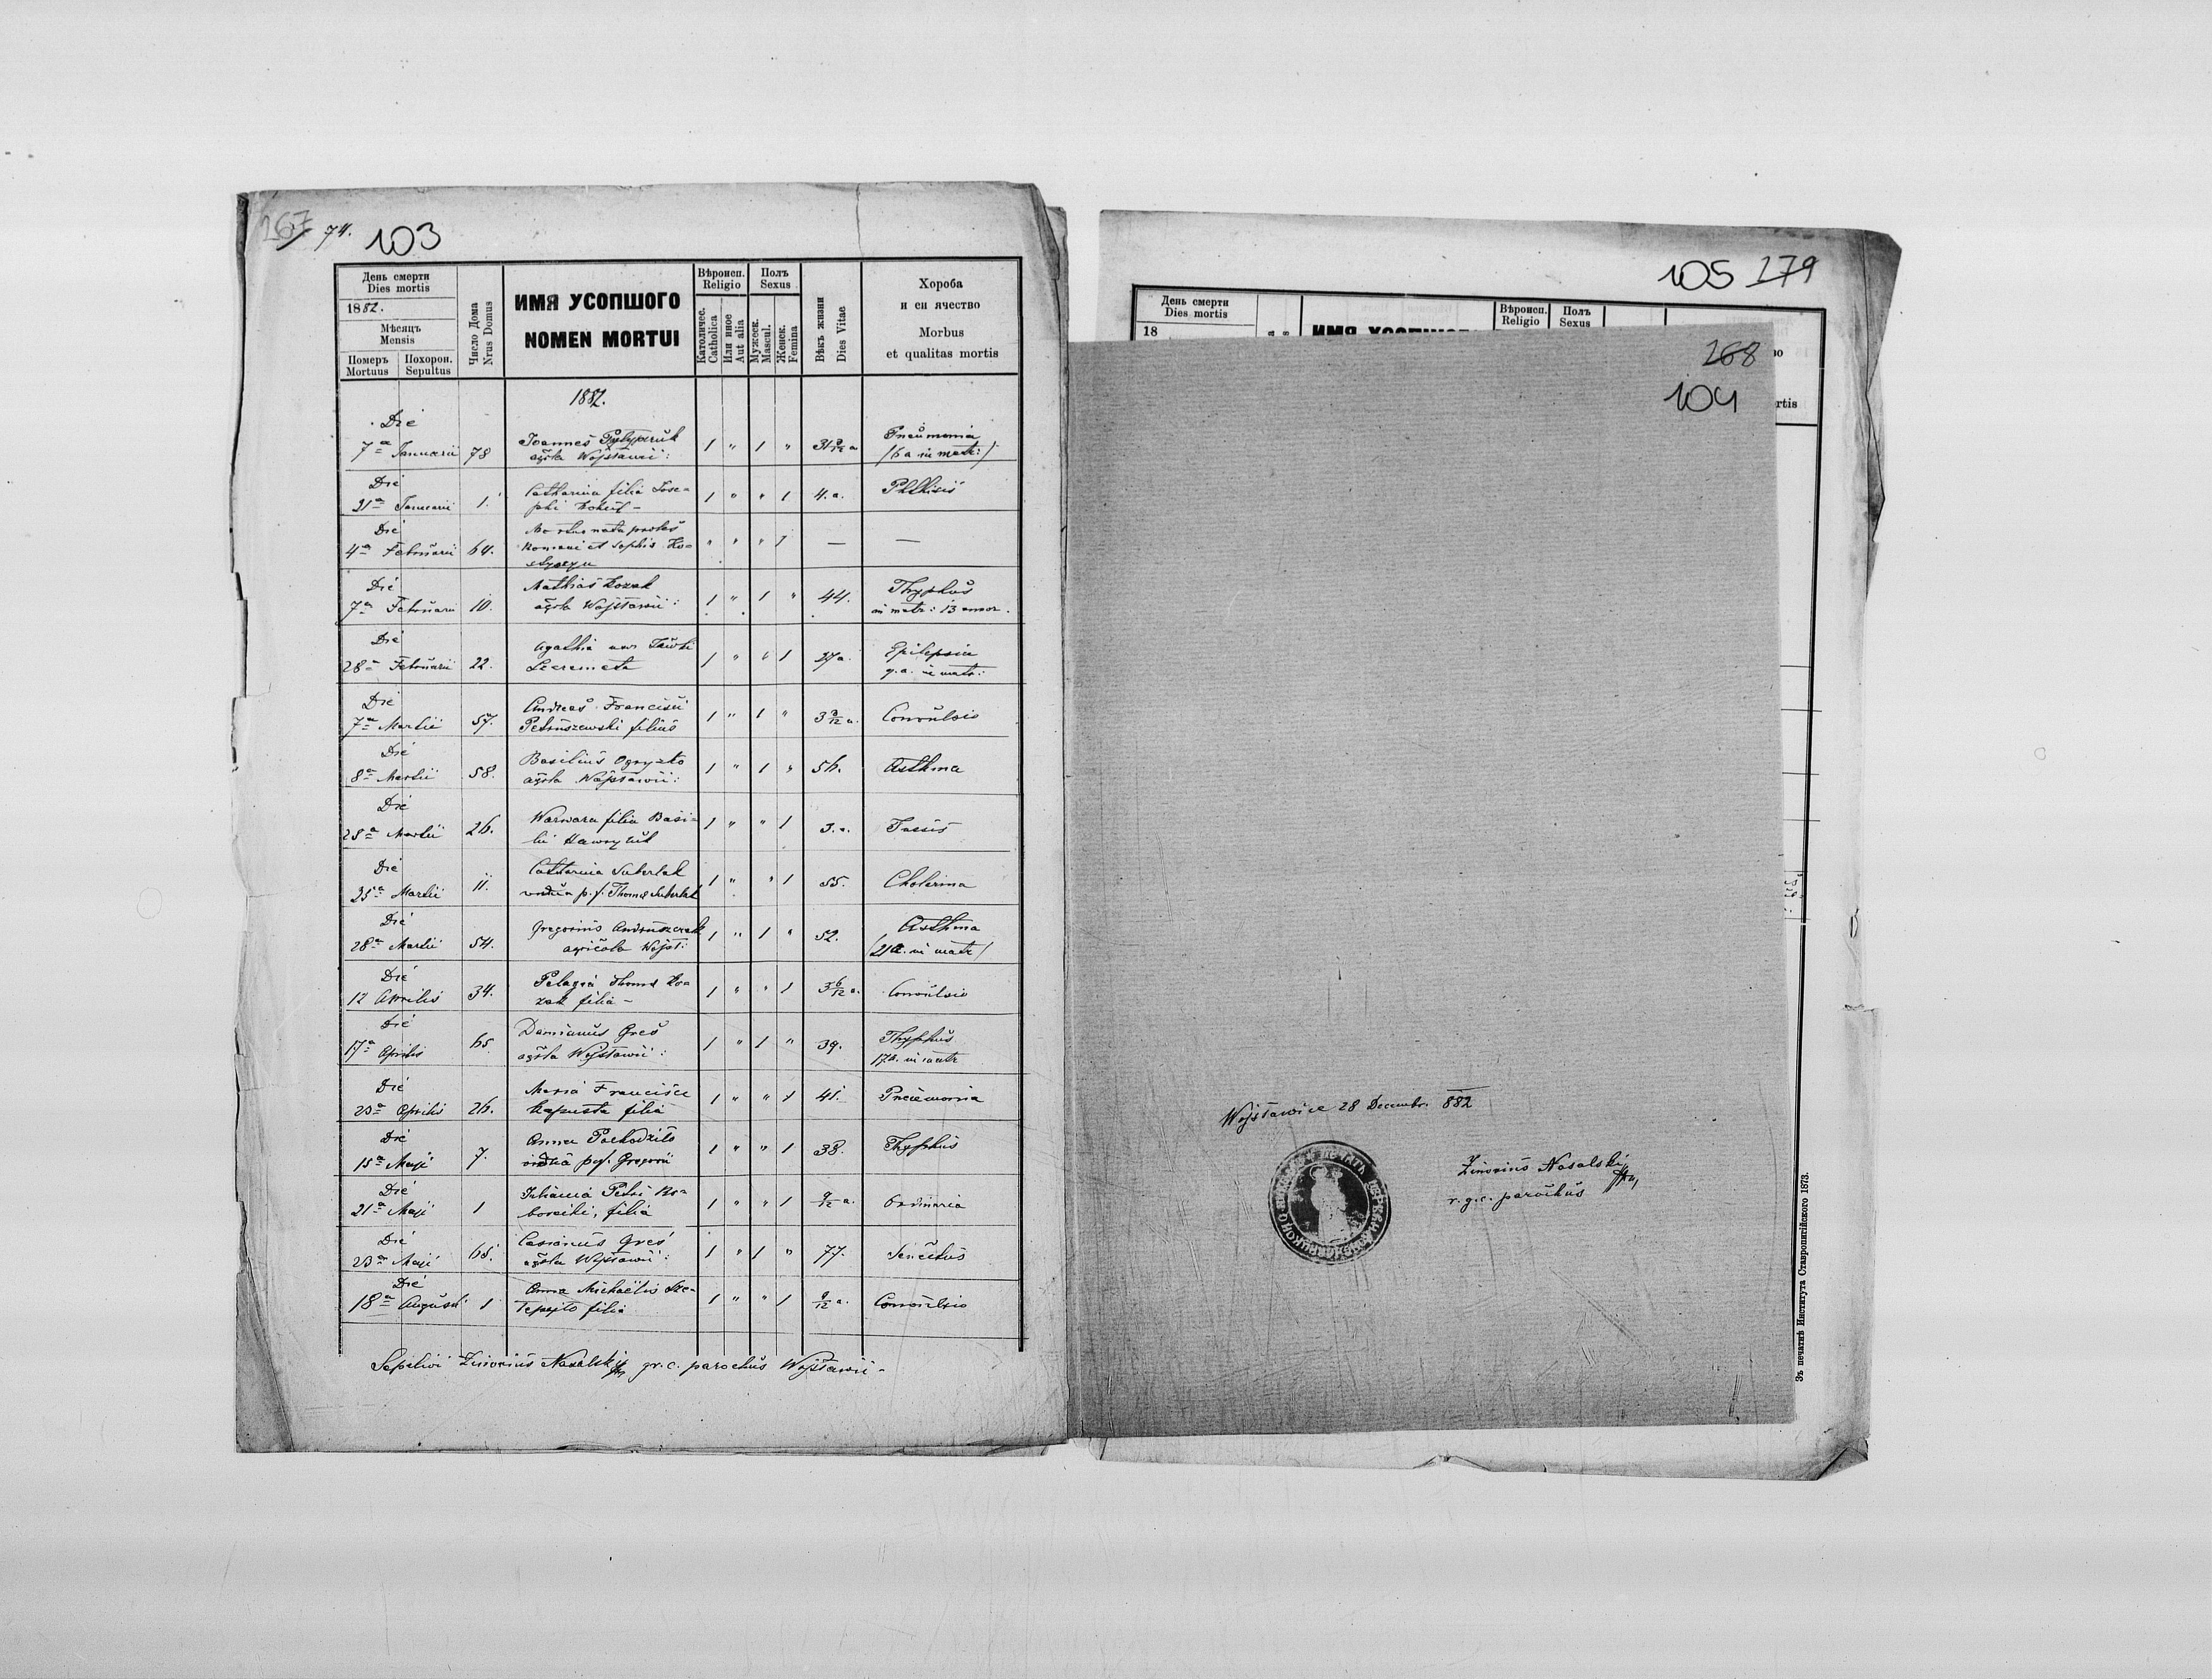 267 74. 103
День смерти
Dies mortis
1882.
Мѣсяцъ
Mensis
Померъ Mortuus
Похорон. Sepultus
Число Дома
Nrus Domus
ИМЯ УСОПШОГО
NOMEN MORTUI
Вѣроисп.
Religio
Католичес.
Catholica
Или иное
Aut alia
Полъ
Sexus
Мужеск.
Mascul.
Женск.
Femina
Вѣкъ жизни
Dies Vitae
Хороба
и еи ячество
Morbus
et qualitas mortis
1882.
Die
7ª Januarii 78 Joannes 1 " 1 " Pneumonia
agrla Wojsławii: /6 a in matr:/
Die
21ª Januarii 1. Catharina filia Jose- 1 " " 1 4. a. Phthisis
phi
Die
4ª Februarii 64. Mortue nata proles " " " 1 — —
Romani et Sophie Ko-
Die
7ª Februarii 10. Mathias Kozak 1 " 1 " 44. Thyphus
agrla Wojsławii: in matr: 13 annor.
Die
28ª Februarii 22. Agathia uxor 1 " " 1 27 a. Epilepsia
Szeremeta 9. a. in matr:
Die
7ª Martii 57. Andreas Francisci 1 " 1 " 3 3/12 a. Convulsio
Petruszewski filius
Die
8ª Martii 58. Basilius Ogryzło 1 " 1 " 56. Asthma
agrla Wojsławii:
Die
Martii 26. Warwara filia Basi- 1 " " 1 3. a. Tussis
lii Hawryluk
Die
25ª Martii 11. Catharina Suberlak 1 " " 1 55. Cholerina
vidua p. f. Thomae Suberlak
Die
28ª Martii 54. Gregorius Andruszczak 1 " 1 " 52. Asthma
agricola Wojsł: /21 a. in matr/
Die
12 Aprilis 34. Pelagia Thomae Ko- 1 " " 1 3 6/12 a. Convulsio
zak filia -
Die
17ª Aprilis 65 Damianus Greś 1 " 1 " 39. Thyphus
agrla Wojsławii: 17 a. in matr
Die
23ª Aprilis 26. Maria Francisci 1 " " 1 41. Pneumonia
Kapusta filia
Die
15ª Maji 7. Anna Pochodziło 1 " " 1 38. Thyphus
vidua p. f. Gregorii
Die
21ª Maji 1 Juliana Petri Ko- 1 " " 1 9/12 a. Ordinaria
filia
Die
23ª Maji 65. Casianus Greś 1 " 1 " 77. Senectus
agrla Wojsławii:
Die
18ª Augusti 1 Anna Michaëlis Sze- 1 " " 1 9/12 a. Convulsio
filia
Sepelivi Zinovius Nasalski gr. c. parochus Wojsławii -
105 179
День смерти
Dies mortis
18
ИМЯ УСОПШОГО
Вѣроисп.
Religio
Полъ
Sexus
268
104
Wojsławice 28 Decembr. 882
Zinovius Nasalski
r. g. c. parochus
Зъ печатнѣ Института Ставропигійского 1873.